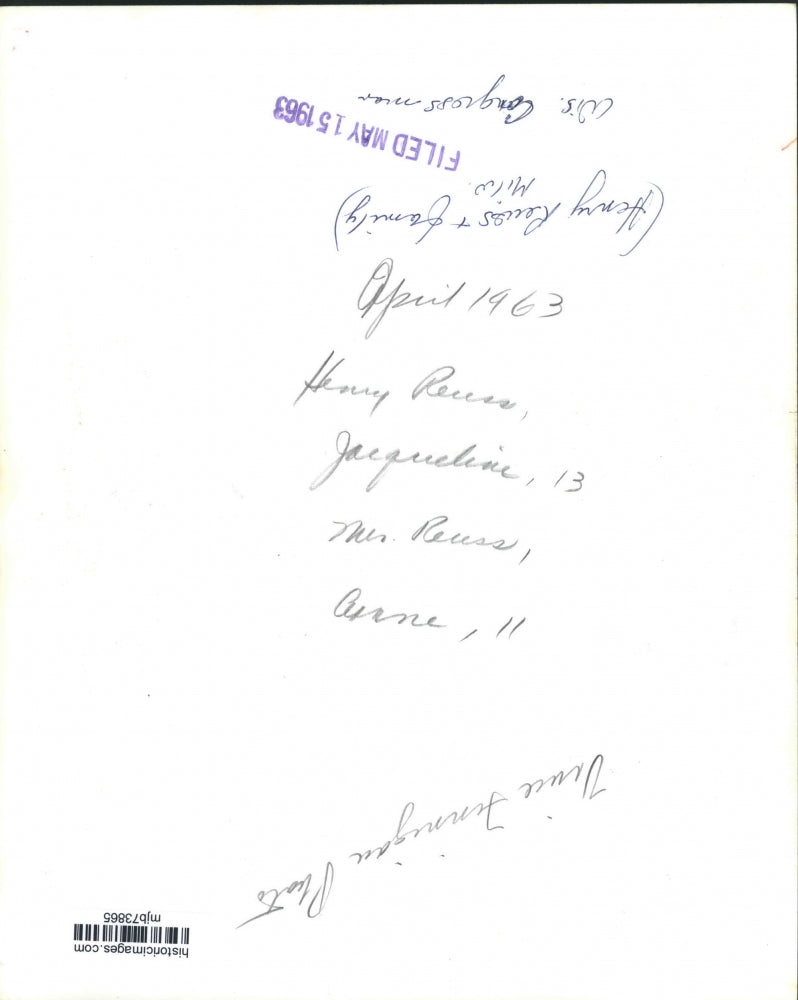 April 1963
Henry Reuss,
Jacqueline, 13
Mrs. Reuss,
Anne, 11
historicimages.com
mjb73865
Vince Finnigan Photo
(Henry Reuss + family)
Milw.
FILED MAY 15 1963
Wis. Congressman